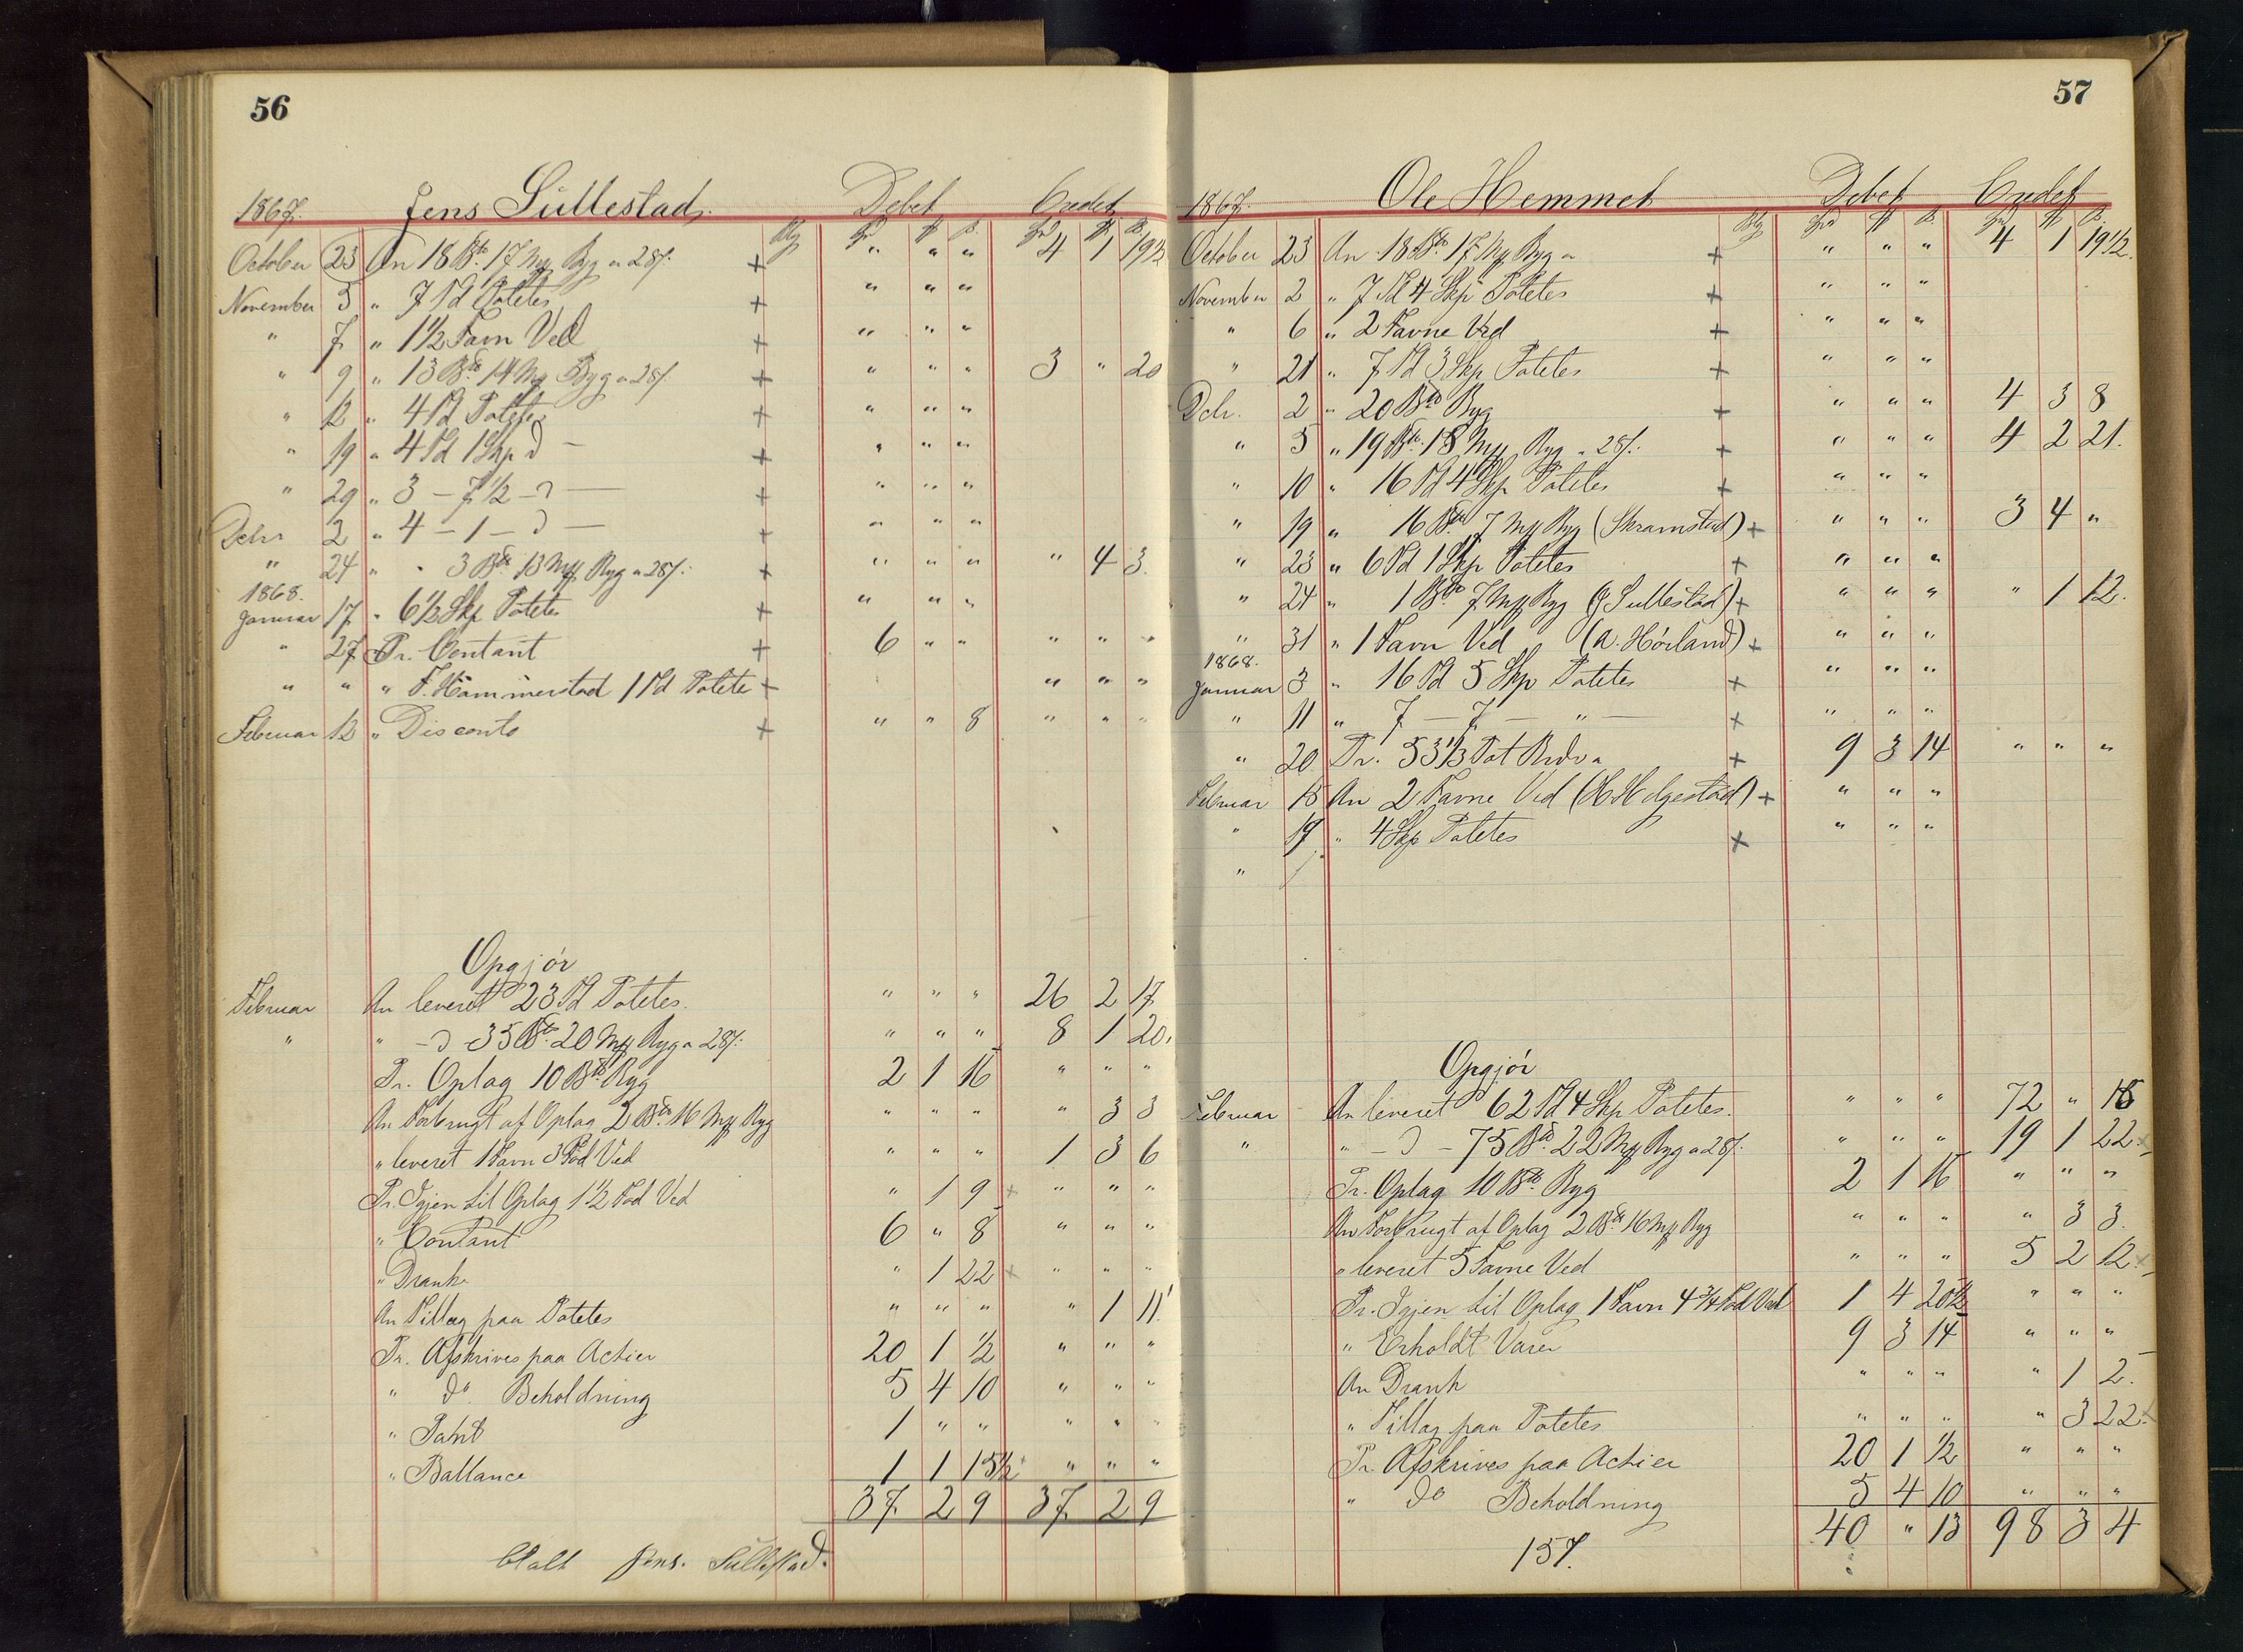 56
1867. Jens Süllestad. Debet Credet
October 23 An 18 Bdr. 17 Mp Byg a 28/. + " " " 4 1 19½
November 5 " 7 Td Potetes + " " "
" 7 " 1½ Favn Ved + " " "
" 9 " 13 Bdr 14 Mp Byg a 28/. + " " " 3 " 20
" 12 " 4 Td Potetes + " " "
" 19 " 4 Td 1 Skp d — + " " "
" 29 " 3 — 7½ — d — + " " "
Dcbr 2 " 4 — 1 — d — + " " "
" 24 " " 3 Bdr. 13 Mp Byg a 28/: + " " " " 4 3.
1868.
Januar 17 " 6½ Skp Potetes + " " "
" 27 Pr. Contant + 6 " " " " "
" " " F. Hammerstad 1 Td Potete + " " "
Februar 12 " Disconto + " " 8 " " "
Opgjör
Februar An leveret 23 Td Potetes. " " " 26 2 17
" " — d 35 Bdr. 20 Mp Byg a 28/: " " " 8 1 20.
Pr. Oplag 10 Bdr. Byg 2 1 16 " " "
An Forbrugt af Oplag 2 Bdr. 16 Mp Byg " " " " 3 3
" leveret 1 Favn 3 Fod Ved " " " 1 3 6
Pr. Igjen til Oplag 1½ Fod Ved " 1 9 + " " "
" Contant 6 " 8 " " "
" Drank " 1 22 + " " "
An Tillæg paa Potetes " " " " 1 11
Pr. Afskrives paa Actier 20 1 ½ " " "
" do. Beholdning 5 4 10 " " "
" Pant 1 " " " " "
" Ballance 1 1 15½ " " "
37 2 9 37 2 9
Jens. Süllestad.
57
1867. Ole Hemmet Debet Credet
October 23 An 18 Bdr. 17 Mp Byg a + " " " 4 1 19½.
November 2 " 7 Td 4 Skp Potetes + " " "
" 6 " 2 Favne Ved + " " "
" 21 " 7 Td 3 Skp Potetes + " " "
Dcbr. 2 " 20 Bdr Byg + " " " 4 3 8
" 5 " 19 Bdr. 18 Mp Byg a 28/: + " " " 4 2 21.
" 10 " 16 Td 4 Skp Potetes + " " "
" 19 " 16 Bdr 7 Mp Byg (Skramstad) + " " " 3 4 "
" 23 " 6 Td 1 Skp Potetes + " " "
" 24 " 1 Bdr. 7 Mp Byg (J Sullestad) + " " " " 1 12.
" 31 " 1 Favn Ved (A. Hörland) + " " "
1868.
Januar 3 " 16 Td 5 Skp Potetes + " " "
" 11 " 7 — 7 — " — + " " "
" 20 Pr. 53⅓ Pot Brdv a + 9 3 14 " " "
Februar 15 An 2 Favne Ved (H Helgestad) + " " "
" 19 " 4 Skp Potetes + " " "
"
Opgjör
Februar An leveret 62 Td 4 Skp Potetes. " " " 72 " 18
" " — d — 75 Bdr 22 Mp Byg a 28/: " " " 19 1 22
Pr. Oplag 10 Bdr. Byg 2 1 16 " " "
An Forbrugt af Oplag 2 Bdr 16 Mp Byg " " " " 3 3.
" leveret 5 Favne Ved " " " 5 2 12.
Pr. Igjen til Oplag 1 Favn 4¾ Fod Ved 1 4 20½ " " "
" Erholdt Varer 9 3 14 " " "
An Drank " " " " 1 2.
" Tillæg paa Potetes " " " " 3 22.
Pr. Afskrives paa Actier 20 1 ½ " " "
" do Beholdning 5 4 10 " " "
40 " 13 98 3 4
157.